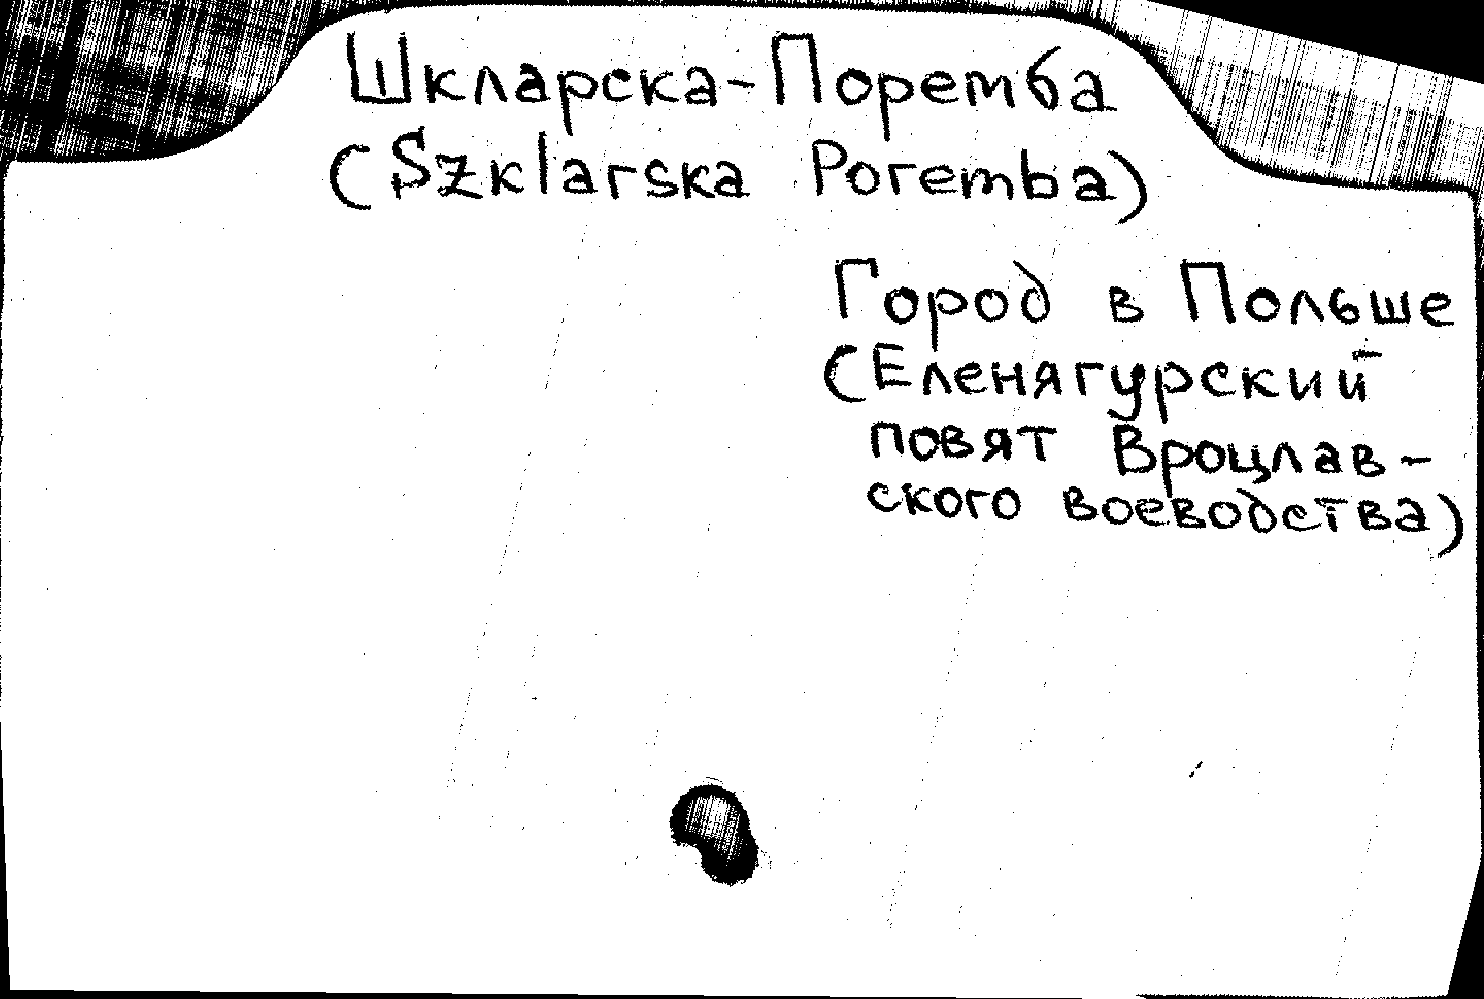 Шкларска-Поремба
(Szklarska Poremba)
Город в Польше
(Еленягурский
повят Вроцлав-
ского воеводства)